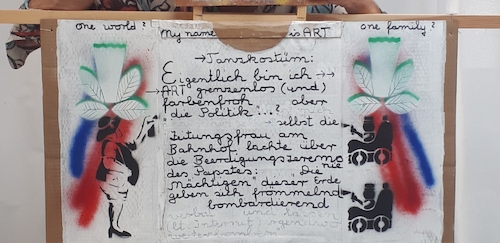 one world?
My name is ART
one family?
→ Tanzkostüm:
Eigentlich bin ich →→
→ ART grenzenlos (und)
farbenfroh aber
die Politik...?
→ selbst die
Zeitungsfrau am
Bahnhof lachte über
die Beerdigungszeremonie
des Papstes: Die
Mächtigen dieser Erde
geben sich frömmelnd
bombardierend
und